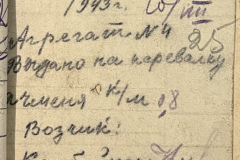 1943 г. 10/VIII
Агрегат № 4 25
Видано на перевалку
ячменя к/м 0,8
Возчик: